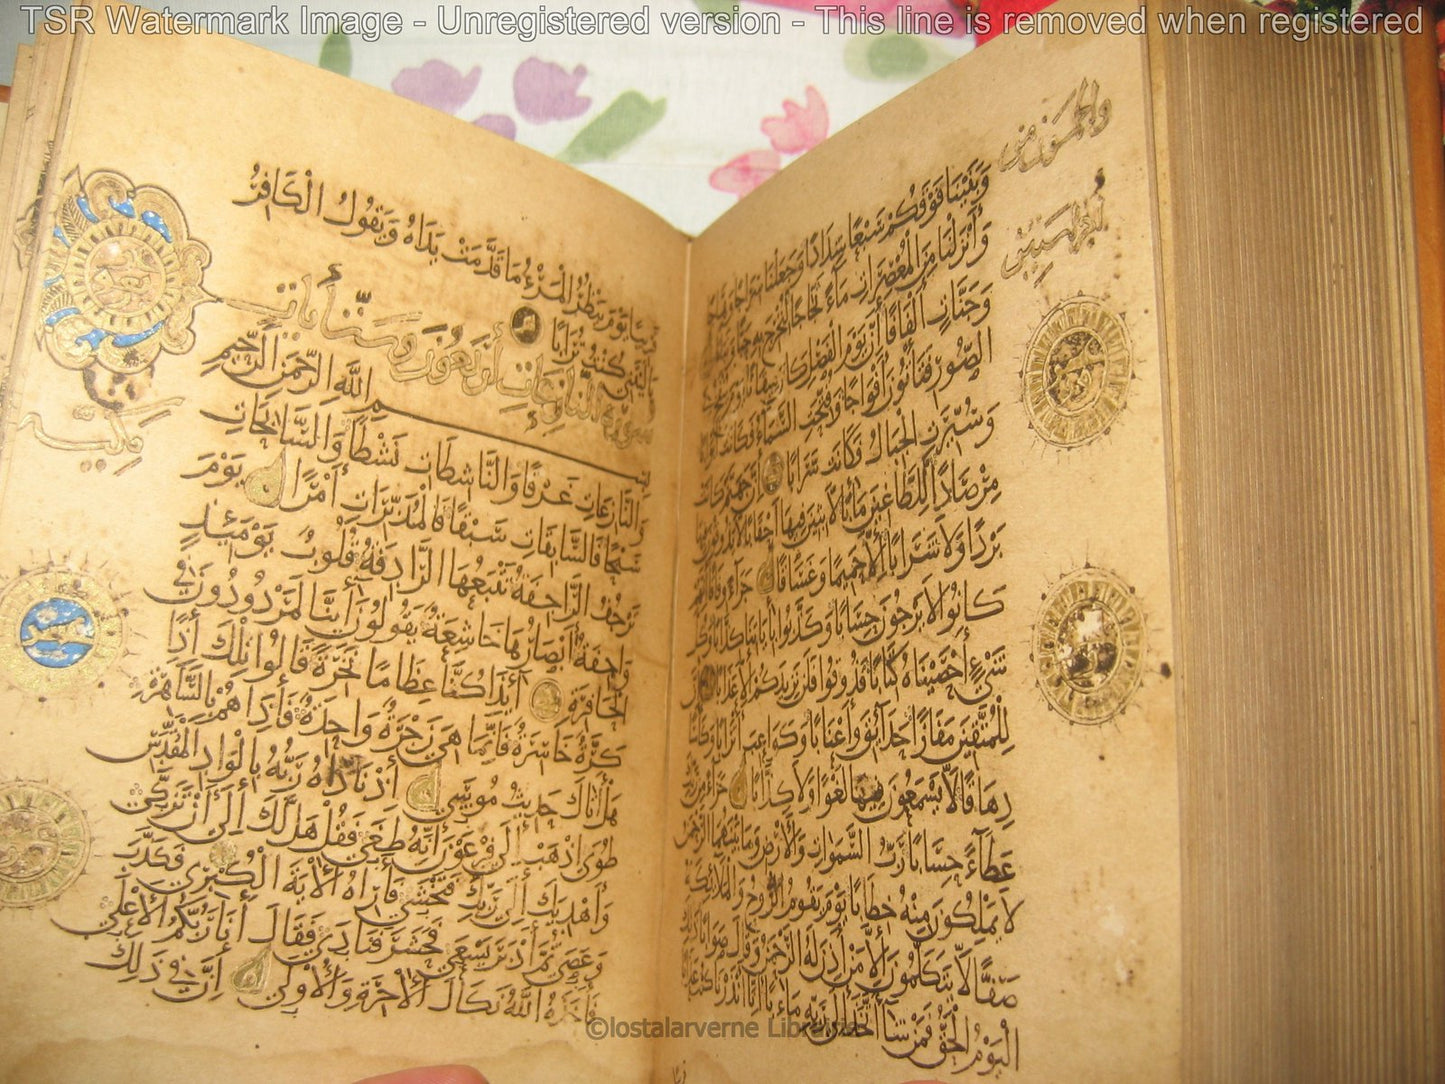 TSR Watermark Image - Unregistered version - This line is removed when registered
وبنينا فوقكم سبعا شدادا وجعلنا سراجا وهاجا
وأنزلنا من المعصرات ماء ثجاجا لنخرج به حبا ونباتا
وجنات ألفافا إن يوم الفصل كان ميقاتا يوم ينفخ في
الصور فتأتون أفواجا وفتحت السماء فكانت أبوابا
وسيرت الجبال فكانت سرابا إن جهنم كانت
مرصادا للطاغين مآبا لابثين فيها أحقابا لا يذوقون فيها
بردا ولا شرابا إلا حميما وغساقا جزاء وفاقا إنهم
كانوا لا يرجون حسابا وكذبوا بآياتنا كذابا وكل
شيء أحصيناه كتابا فذوقوا فلن نزيدكم إلا عذابا إن
للمتقين مفازا حدائق وأعنابا وكواعب أترابا وكأسا
دهاقا لا يسمعون فيها لغوا ولا كذابا جزاء من ربك
عطاء حسابا رب السموات والأرض وما بينهما الرحمن
لا يملكون منه خطابا يوم يقوم الروح والملائكة
صفا لا يتكلمون إلا من أذن له الرحمن وقال صوابا ذلك
اليوم الحق فمن شاء اتخذ إلى ربه مآبا إنا أنذرناكم عذابا
قريبا يوم ينظر المرء ما قدمت يداه ويقول الكافر
يا ليتني كنت ترابا
سورة النازعات أربعون وست آيات
مكية
بسم الله الرحمن الرحيم
والنازعات غرقا والناشطات نشطا والسابحات
سبحا فالسابقات سبقا فالمدبرات أمرا يوم
ترجف الراجفة تتبعها الرادفة قلوب يومئذ
واجفة أبصارها خاشعة يقولون أئنا لمردودون في
الحافرة أئذا كنا عظاما نخرة قالوا تلك إذا
كرة خاسرة فإنما هي زجرة واحدة فإذا هم بالساهرة
هل أتاك حديث موسى إذ ناداه ربه بالواد المقدس
طوى اذهب إلى فرعون إنه طغى فقل هل لك إلى أن تزكى
وأهديك إلى ربك فتخشى فأراه الآية الكبرى فكذب
وعصى ثم أدبر يسعى فحشر فنادى فقال أنا ربكم الأعلى
فأخذه الله نكال الآخرة والأولى إن في ذلك
©lostalarverne Librairie